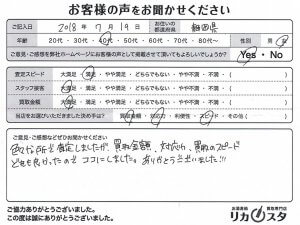 お客様の声をお聞かせください
ご記入日 2018年7月19日 お住いの都道府県 福岡県
年齢 20代・30代・40代・50代・60代・70代・80代〜 性別 男・女
ご意見・ご感想を弊社ホームページにお客様の声として掲載させて頂いてもよろしいでしょうか? Yes・No
査定スピード 大満足・満足・やや満足・どちらでもない・やや不満・不満・( )
スタッフ接客 大満足・満足・やや満足・どちらでもない・やや不満・不満・( )
買取金額 大満足・満足・やや満足・どちらでもない・やや不満・不満・( )
当店をお選びいただきました決め手は? 買取金額・対応・利便性・スピード・その他( )
ご意見・ご感想などぜひお聞かせください
色々な所で査定しましたが、買取金額、対応、買取のスピード
どれも良かったので ココにしました。ありがとうございました!!!
ご協力ありがとうございました。
この度は誠にありがとうございました。
お酒直送 買取専門店
リカスタ